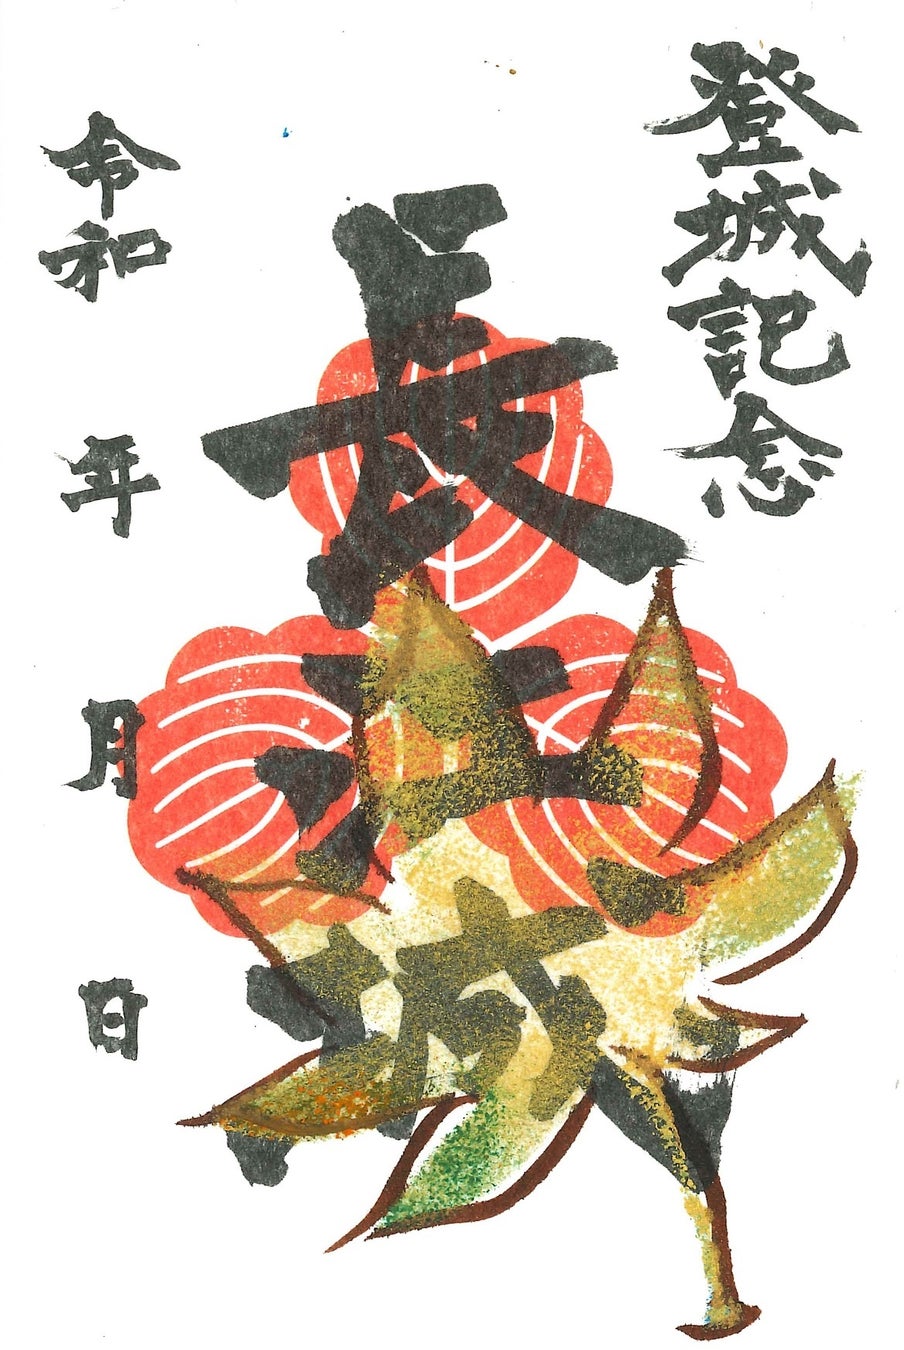 登城記念
長浜城
令和 年 月 日